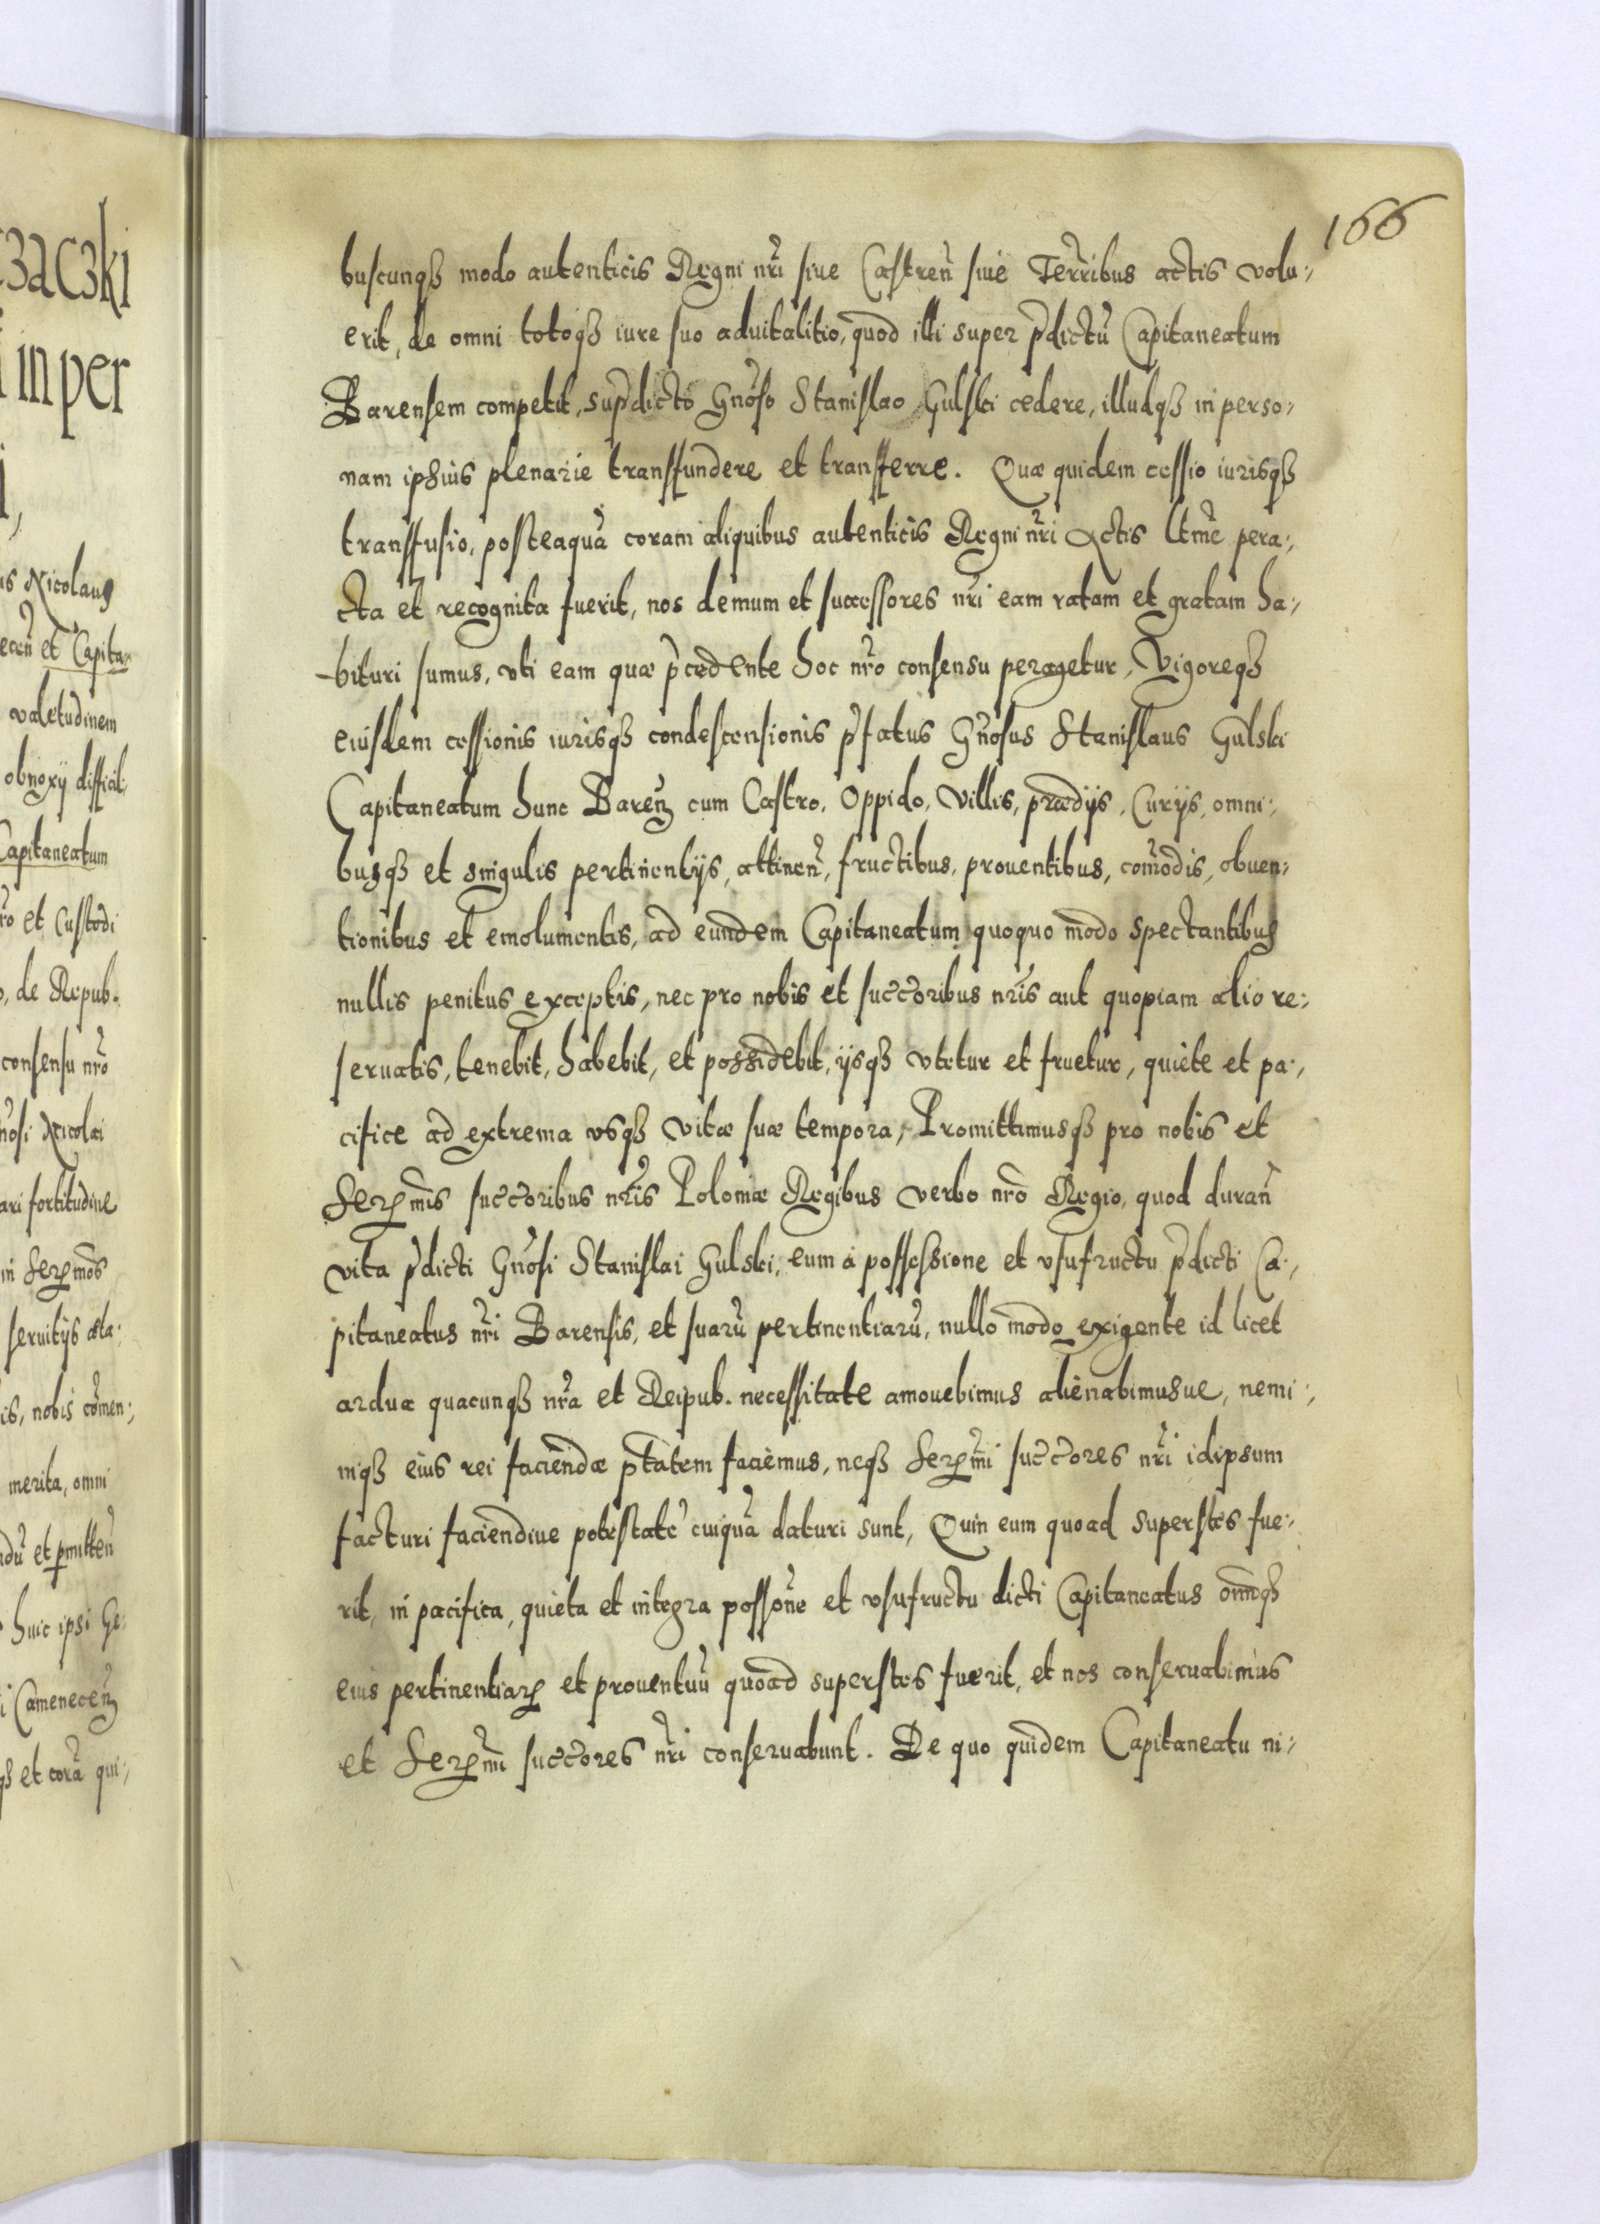 czaczki
in per
i,
us Nicolaus
ecen̄ et Capita-
valetudinem
obnoxij difficil:
Capitaneatum
ro et Custodi
o, de Repub.
consensu nr̄o
n̄osi Nicolai
ari fortitudine
in Serꝫmos
seruitijs
is, nobis com̄en:,
merita, omni
ndū et pmitten̄
huic ipsi Ge:
i Camenecen̄
qꝫ et corā qui:,
166
buscunqꝫ modo autenticis Regni nr̄i siue Castren̄ siue Terr̄ibus actis volu:,
erit, de omni totoqꝫ iure suo aduitalitio, quod illi super p̄dictū Capitaneatum
Barensem competit, sup̄dicto Gn̄oso Stanislao Gulski cedere, illudqꝫ in perso:,
nam ipsius plenarie transfundere et transferre. Quæ quidem cessio iurisqꝫ
transfusio, posteaquā coram aliquibus autenticis Regni nr̄i Actis ltm̄e pera:,
cta et recognita fuerit, nos demum et successores nr̄i eam ratam et gratam ha:,
bituri sumus, vti eam quæ p̄cedente hoc nr̄o consensu peragetur, Vigoreqꝫ
eiusdem cessionis iurisqꝫ condescensionis p̄fatus Gn̄osus Stanislaus Gulski
Capitaneatum hunc Baren̄ cum Castro, Oppido, Villis, prædijs, Curijs, omni:,
busqꝫ et singulis pertinentijs, attinen̄, fructibus, prouentibus, com̄odis, obuen:,
tionibus et emolumentis, ad eundem Capitaneatum quoquo modo spectantibus
nullis penitus exceptis, nec pro nobis et succ̄oribus nr̄is aut quopiam alio re:,
seruatis, tenebit, habebit, et possidebit, ijsqꝫ vtetur et fruetur, quiete et pa:,
cifice ad extrema vsqꝫ vitæ suæ tempora, Promittimusqꝫ pro nobis et
Serꝫmis succ̄oribus nr̄is Poloniæ Regibus verbo nr̄o Regio, quod duran̄
vita p̄dicti Gn̄osi Stanislai Gulski, eum à possessione et vsufructu p̄dicti Ca:,
pitaneatus nr̄i Barensis, et suarū pertinentiarū, nullo modo exigente id licet
ardua quacunqꝫ nr̄a et Reipub. necessitate amouebimus alienabimusue, nemi:,
niqꝫ eius rei faciendæ ptatem faciemus, neqꝫ Serꝫmi succ̄ores nr̄i idipsum
facturi faciendiue potestatē cuiquā daturi sunt, Quin eum quoad superstes fue:,
rit, in pacifica, quieta et integra possōne et vsufructu dicti Capitaneatus om̄iqꝫ
eius pertinentiarꝫ et prouentuū quoad superstes fuerit, et nos conseruabimus
et Serꝫmi succ̄ores nr̄i conseruabunt. De quo quidem Capitaneatu ni:,